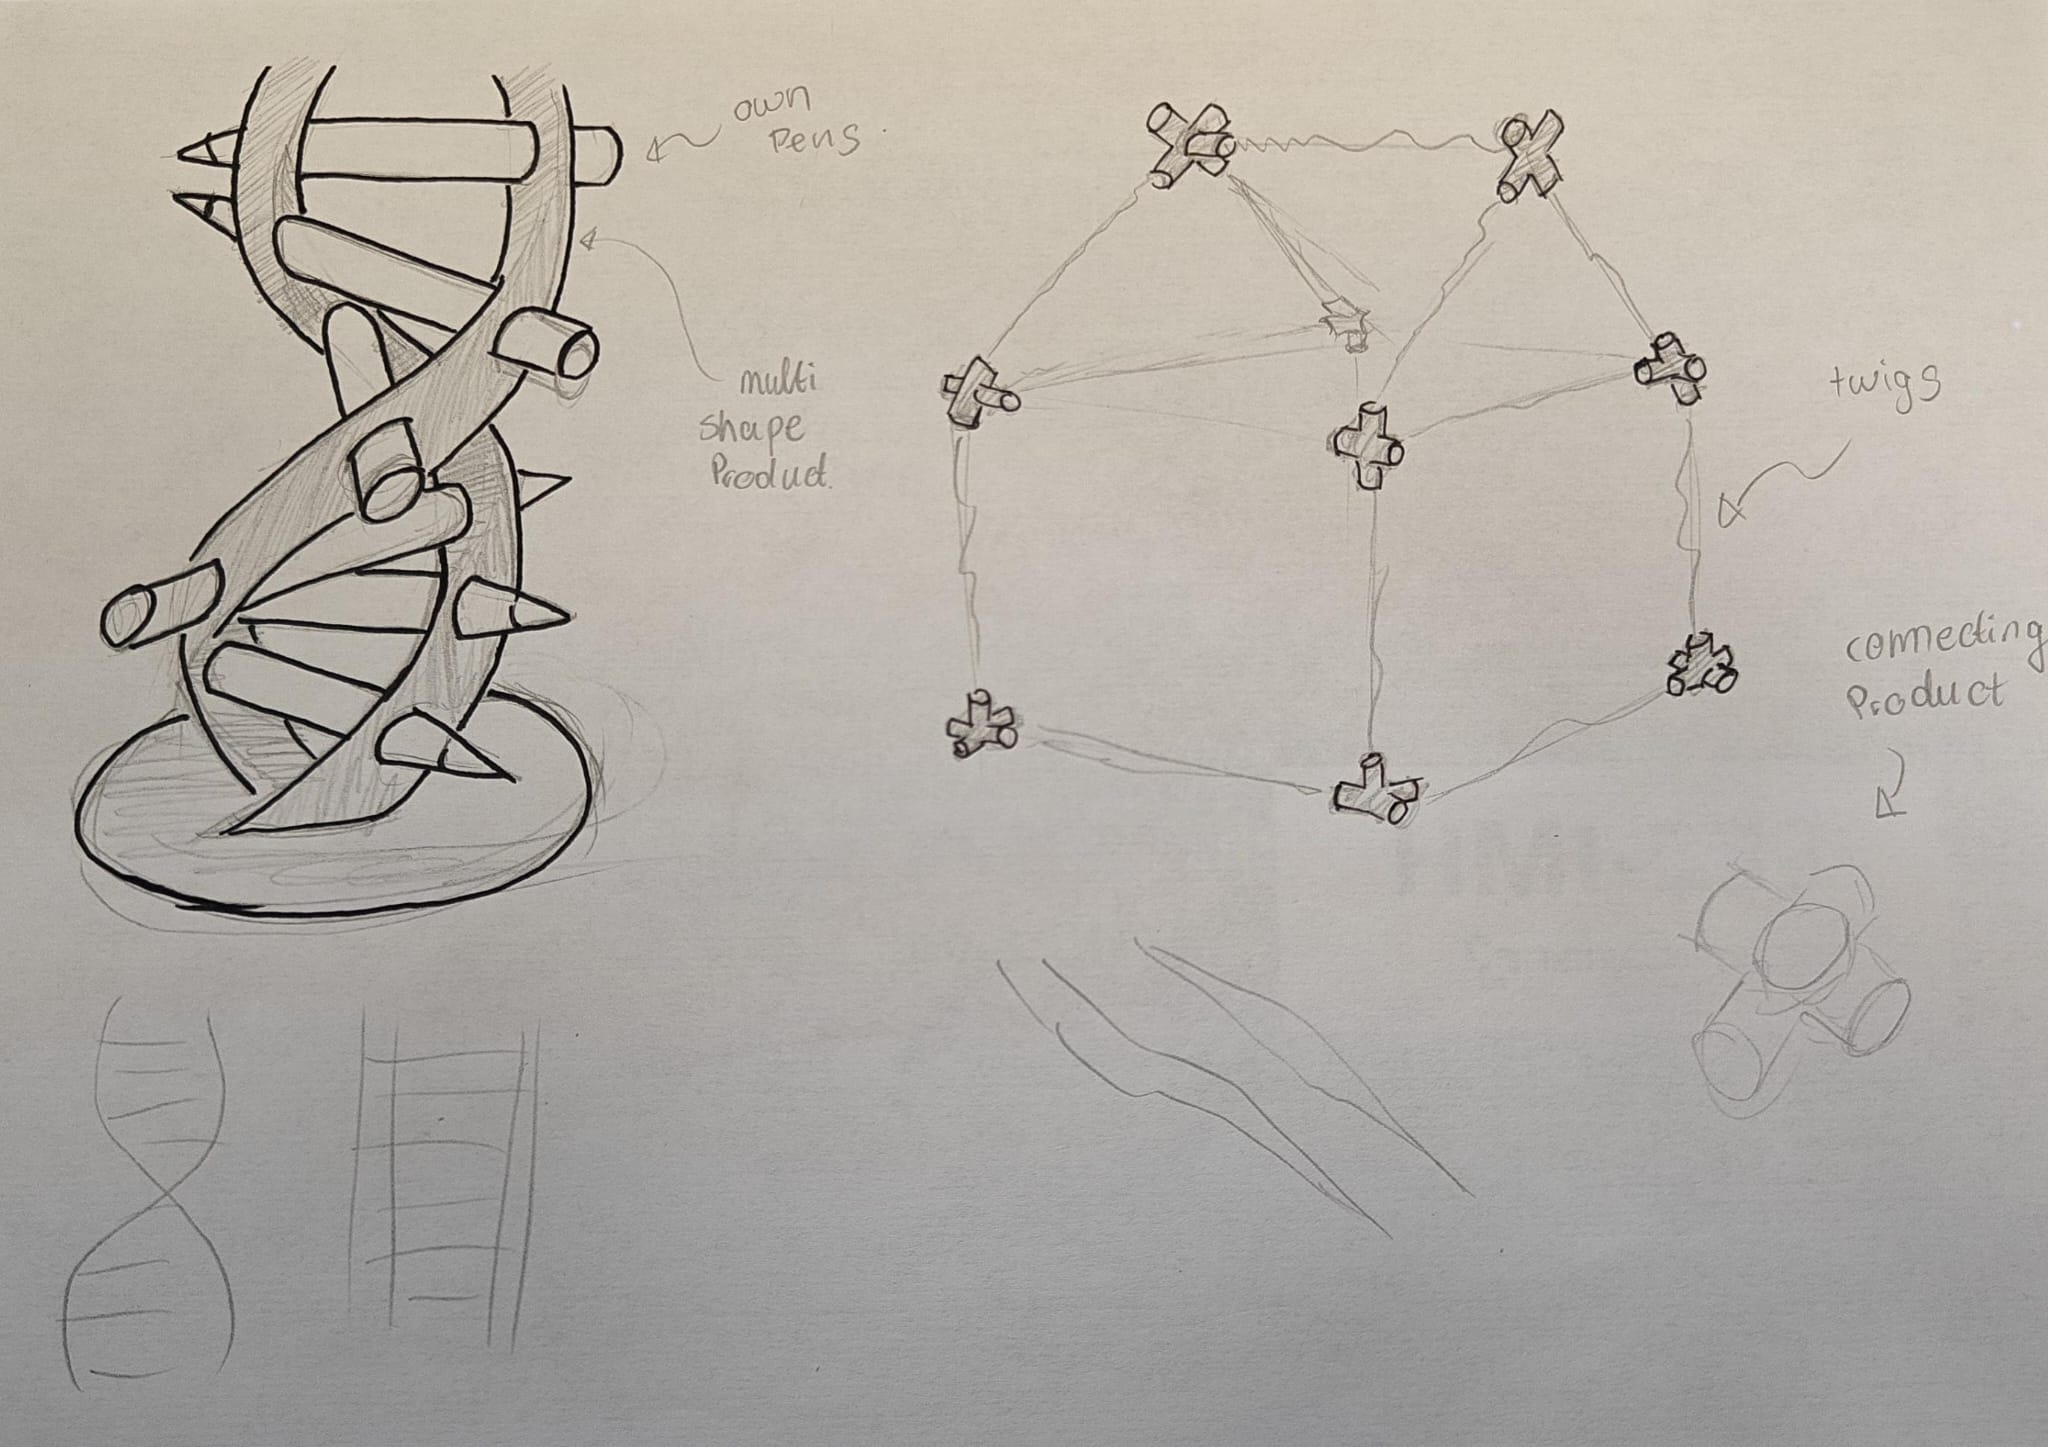 own
Pens.
multi
shape
Product.
twigs
connecting
Product